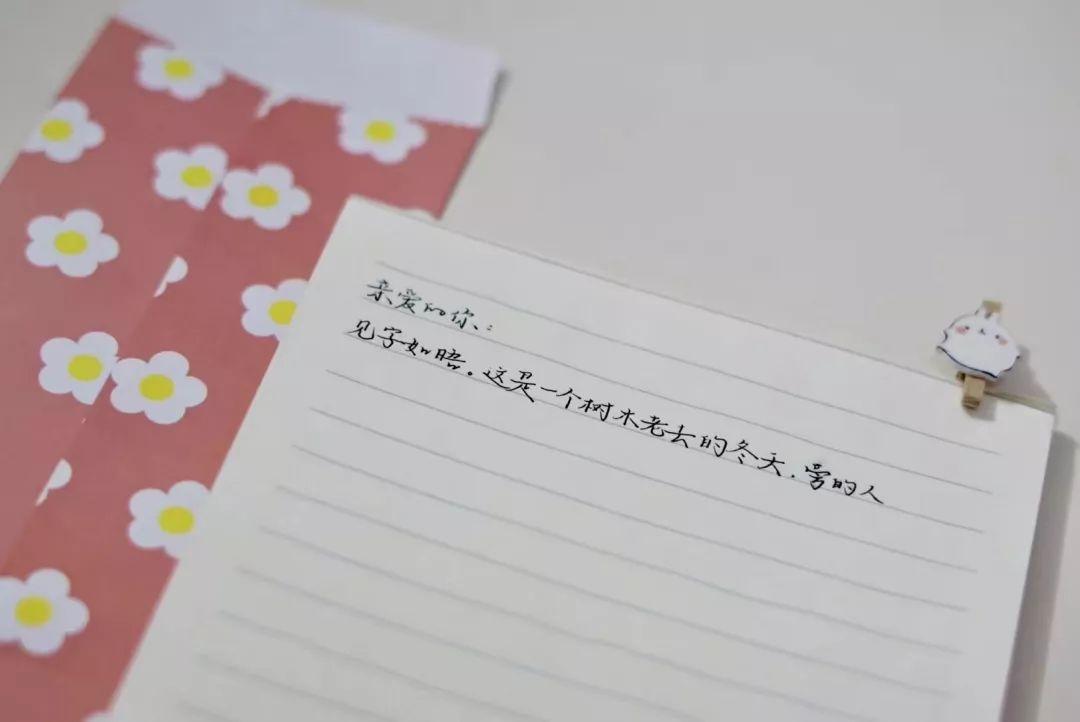 亲爱的你：
见字如晤。这是一个树木老去的冬天，旁的人